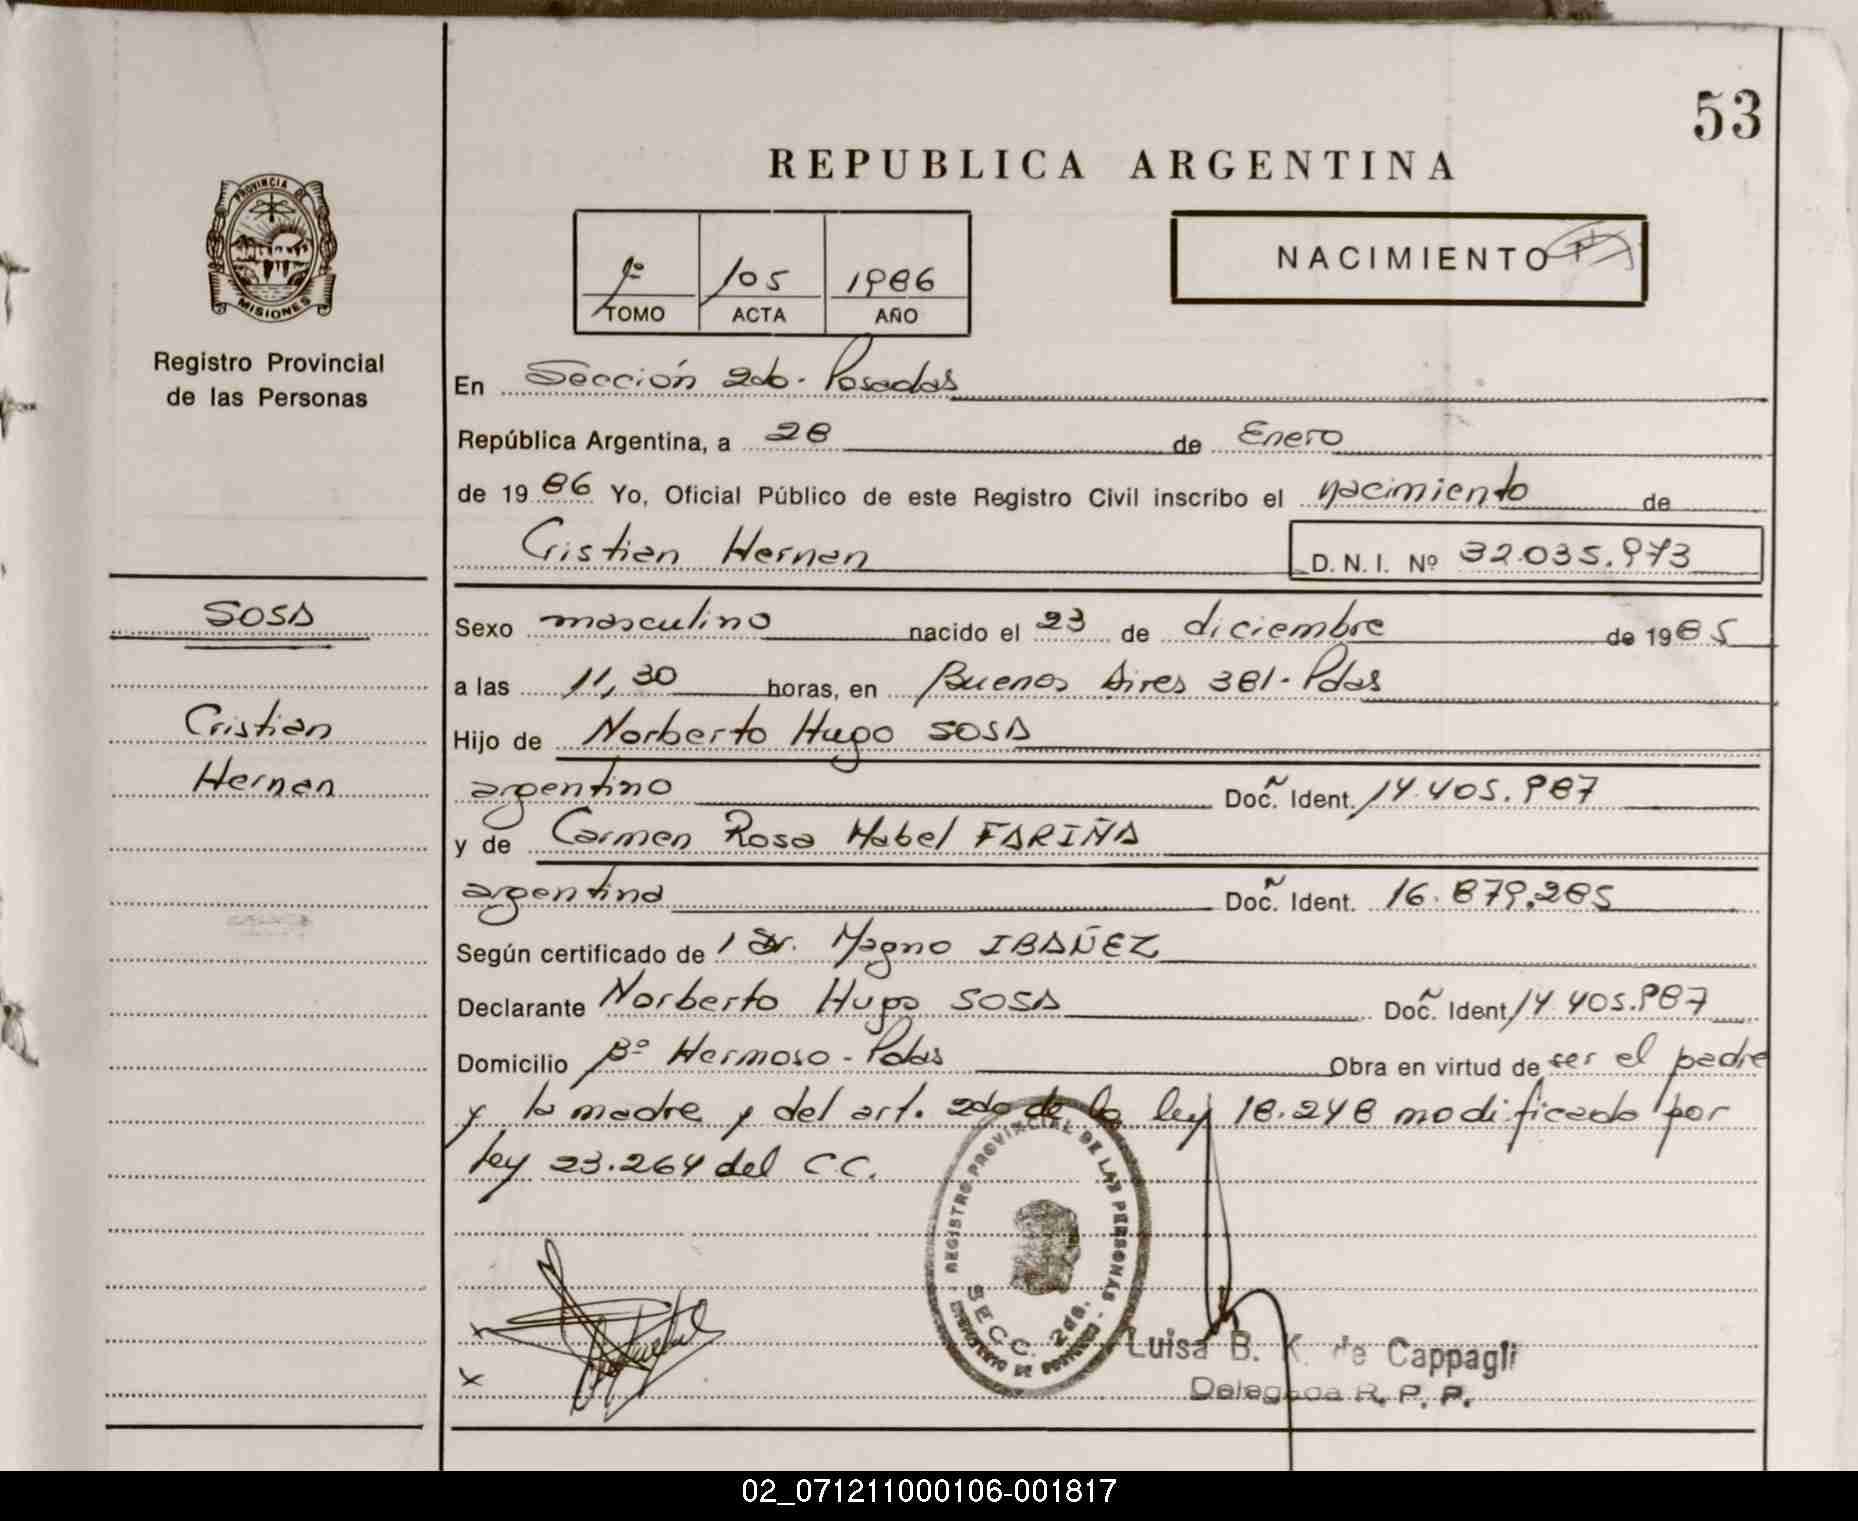 53
REPUBLICA ARGENTINA
PROVINCIA DE
MISIONES
Registro Provincial
de las Personas
1º 105 1986
TOMO ACTA AÑO
NACIMIENTO
En Sección 2da. Posadas
República Argentina, a 28 de Enero
de 1986 Yo, Oficial Público de este Registro Civil inscribo el nacimiento de
Cristian Hernan D. N. I. Nº 32.035.973
SOSA
Cristian
Hernan
Sexo masculino nacido el 23 de diciembre de 1985
a las 11,30 horas, en Buenos Aires 381- Pdas
Hijo de Norberto Hugo SOSA
argentino Doc. Ident. 14.405.987
y de Carmen Rosa Mabel FARIÑA
argentina Doc. Ident. 16.879.285
Según certificado de 1 Dr. Magno IBAÑEZ
Declarante Norberto Hugo SOSA Doc. Ident. 14.405.987
Domicilio Bº Hermoso - Pdas Obra en virtud de ser el padre
y la madre y del art. 2do de la ley 18.248 modificado por
ley 23.264 del C.C.
REGISTRO PROVINCIAL DE LAS PERSONAS
SECC. 2da.
MINISTERIO DE GOBIERNO
x
x
Luisa B. K. de Cappagli
Delegada R. P. P.
02_071211000106-001817